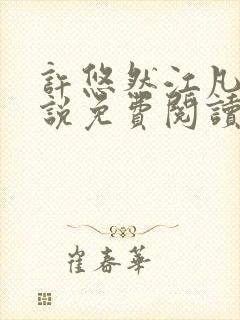 許悠然江凡
說免費閱讀
崔春華